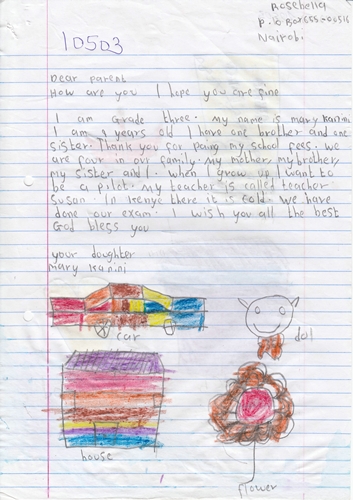 Rosebella
P.O Box 655-00515
Nairobi.
10503
Dear parent
How are you I hope you are fine
I am Grade three. my name is mary
I am 9 years old I have one brother and one
sister. Thank you for paing my school fees. we
are four in our family. my mother, my brother,
my sister and I. when I grow up I want to
be a pilot. my teacher is called teacher
Susan. In kenye there it is cold. we have
done our exam. I wish you all the best
God bless you
your doughter
mary
car
dol
house
flower